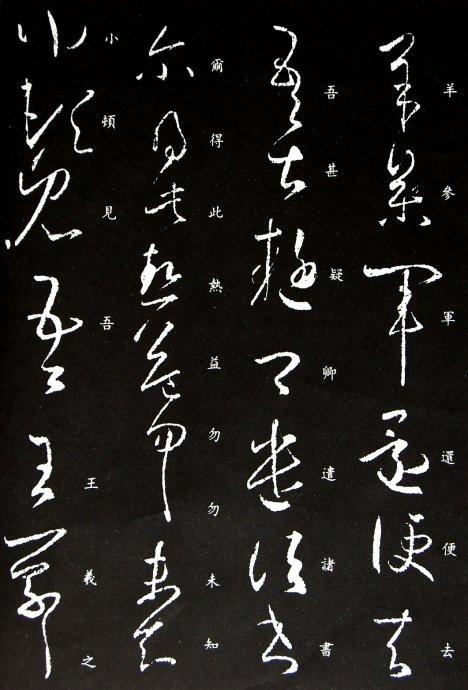 羊參軍還便去
吾甚疑卿遣諸書
爾得此熱益勿勿未知
小頓見吾王義之